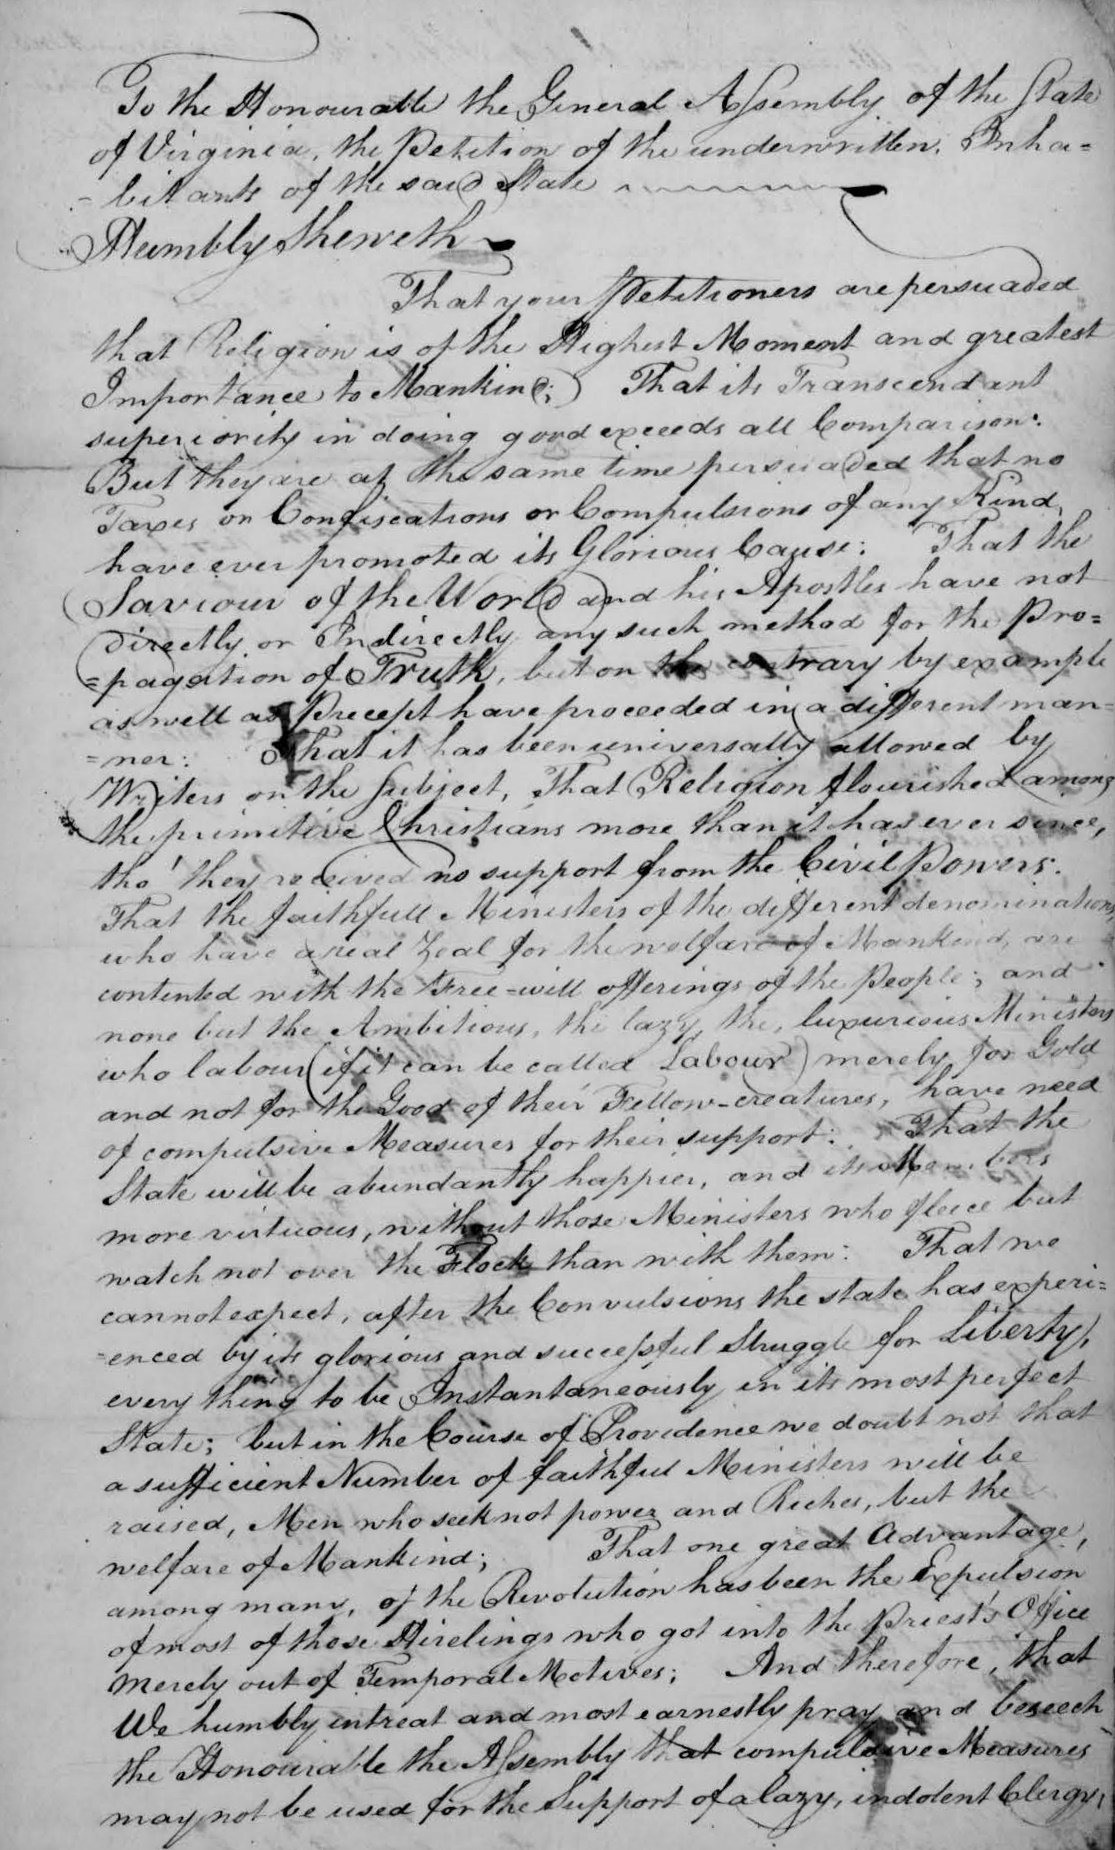 To the Honourable the General Assembly of the State
of Virginia, the Petition of the underwritten, Inha=
=bitants of the said State
Humbly Sheweth
That your Petitioners are persuaded
that Religion is of the Highest Moment and greatest
Importance to Mankind; That its Transcendant
superiority in doing good exceeds all Comparison:
But they are at the same time persuaded that no
Taxes or Confiscations or Compulsions of any Kind,
have ever promoted its Glorious Cause: That the
Saviour of the World and his Apostles have not
Directly or Indirectly any such method for the Pro=
=pagation of Truth, but on the contrary by example
as well as Precept have proceeded in a different man=
=ner: That it has been universally allowed by
Writers on the Subject, That Religion flourished among
the primitive Christians more than it has ever since,
tho' they received no support from the Civil Powers:
That the faithfull Ministers of the different denominations
who have a real Zeal for the welfare of Mankind, are
contented with the Free=will offerings of the People; and
none but the Ambitious, the lazy, the, luxurious Ministers
who labour (if it can be called Labour) merely for Gold
and not for the Good of their Fellow-creatures, have need
of compulsive Measures for their support: That the
State will be abundantly happier, and its Members
more virtuous, without those Ministers who fleece but
watch not over the Flock than with them: That we
cannot expect, after the Convulsions the state has experi=
=enced by its glorious and successful Struggle for Liberty,
every thing to be Instantaneously in its most perfect
State; but in the Course of Providence we doubt not that
a sufficient Number of faithful Ministers will be
raised, Men who seek not power and Riches, but the
welfare of Mankind; That one great Advantage,
among many, of the Revolution has been the Expulsion
of most of those Hirelings who got into the Priest's Office
merely out of Temporal Motives; And therefore, that
We humbly intreat and most earnestly pray and beseech
the Honourable the Assembly that compulsive Measures
may not be used for the Support of a lazy, indolent Clergy,